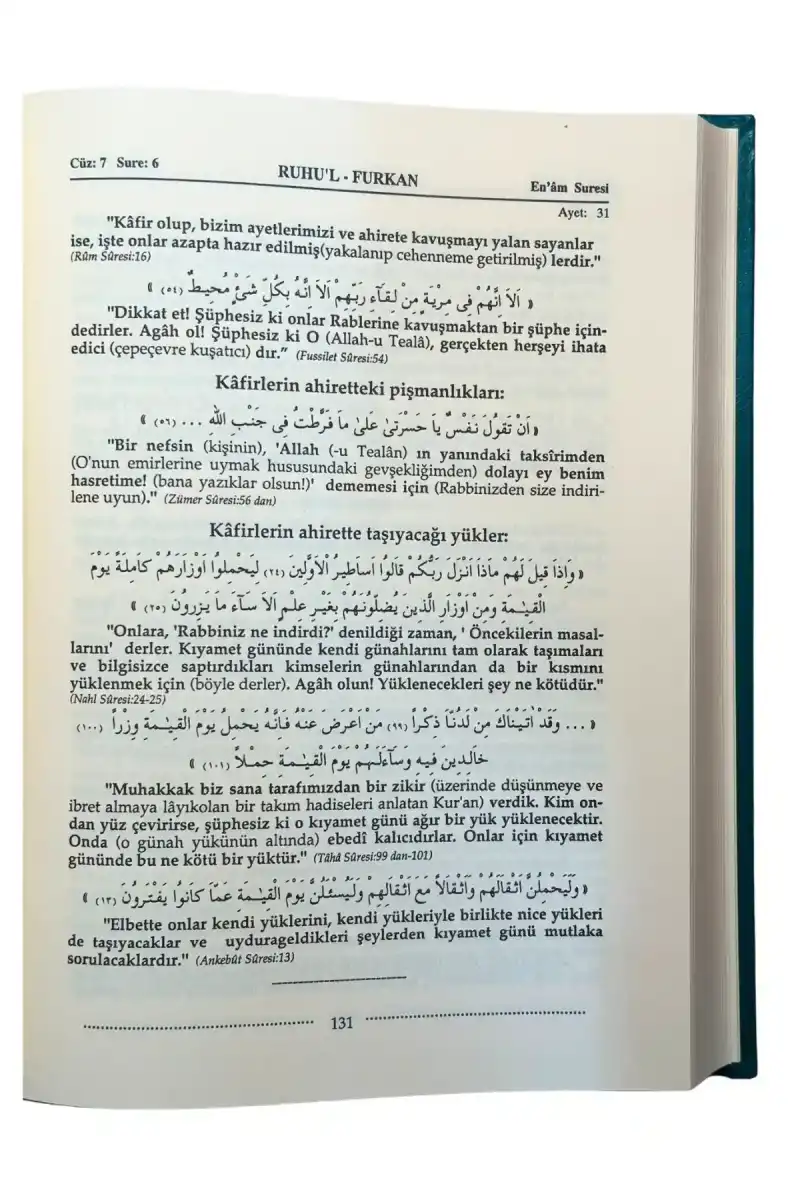 Cüz: 7 Sure: 6
RUHU'L - FURKAN
En'âm Suresi
Ayet: 31
"Kâfir olup, bizim ayetlerimizi ve ahirete kavuşmayı yalan sayanlar
ise, işte onlar azapta hazır edilmiş(yakalanıp cehenneme getirilmiş) lerdir."
(Rûm Sûresi:16)
﴿ اَلَا اِنَّهُمْ فِى مِرْيَةٍ مِنْ لِقَاءِ رَبِّهِمْ اَلَا اِنَّهُ بِكُلِّ شَىْءٍ مُحِيطٌ (٥٤) ﴾
"Dikkat et! Şüphesiz ki onlar Rablerine kavuşmaktan bir şüphe için-
dedirler. Agâh ol! Şüphesiz ki O (Allah-u Tealâ), gerçekten herşeyi ihata
edici (çepeçevre kuşatıcı) dır." (Fussilet Sûresi:54)
Kâfirlerin ahiretteki pişmanlıkları:
﴿ اَنْ تَقُولَ نَفْسٌ يَا حَسْرَتَى عَلَى مَا فَرَّطْتُ فِى جَنْبِ اللهِ ... (٥٦) ﴾
"Bir nefsin (kişinin), 'Allah (-u Tealân) ın yanındaki taksîrimden
(O'nun emirlerine uymak hususundaki gevşekliğimden) dolayı ey benim
hasretime! (bana yazıklar olsun!)' dememesi için (Rabbinizden size indiri-
lene uyun)." (Zümer Sûresi:56 dan)
Kâfirlerin ahirette taşıyacağı yükler:
﴿ وَاِذَا قِيلَ لَهُمْ مَاذَا اَنْزَلَ رَبُّكُمْ قَالُوا اَسَاطِيرُ الْاَوَّلِينَ (٢٤) لِيَحْمِلُوا اَوْزَارَهُمْ كَامِلَةً يَوْمَ
الْقِيٰمَةِ وَمِنْ اَوْزَارِ الَّذِينَ يُضِلُّونَهُمْ بِغَيْرِ عِلْمٍ اَلَا سَاءَ مَا يَزِرُونَ (٢٥) ﴾
"Onlara, 'Rabbiniz ne indirdi?' denildiği zaman, ' Öncekilerin masal-
larını' derler. Kıyamet gününde kendi günahlarını tam olarak taşımaları
ve bilgisizce saptırdıkları kimselerin günahlarından da bir kısmını
yüklenmek için (böyle derler). Agâh olun! Yüklenecekleri şey ne kötüdür."
(Nahl Sûresi:24-25)
﴿ ... وَقَدْ اٰتَيْنَاكَ مِنْ لَدُنَّا ذِكْراً (٩٩) مَنْ اَعْرَضَ عَنْهُ فَاِنَّهُ يَحْمِلُ يَوْمَ الْقِيٰمَةِ وِزْراً (١٠٠)
خَالِدِينَ فِيهِ وَسَاءَ لَهُمْ يَوْمَ الْقِيٰمَةِ حِمْلاً (١٠١) ﴾
"Muhakkak biz sana tarafımızdan bir zikir (üzerinde düşünmeye ve
ibret almaya lâyıkolan bir takım hadiseleri anlatan Kur'an) verdik. Kim on-
dan yüz çevirirse, şüphesiz ki o kıyamet günü ağır bir yük yüklenecektir.
Onda (o günah yükünün altında) ebedî kalıcıdırlar. Onlar için kıyamet
gününde bu ne kötü bir yüktür." (Tâhâ Sûresi:99 dan-101)
﴿ وَلَيَحْمِلُنَّ اَثْقَالَهُمْ وَاَثْقَالاً مَعَ اَثْقَالِهِمْ وَلَيُسْئَلُنَّ يَوْمَ الْقِيٰمَةِ عَمَّا كَانُوا يَفْتَرُونَ (١٣) ﴾
"Elbette onlar kendi yüklerini, kendi yükleriyle birlikte nice yükleri
de taşıyacaklar ve uydurageldikleri şeylerden kıyamet günü mutlaka
sorulacaklardır." (Ankebût Sûresi:13)
131